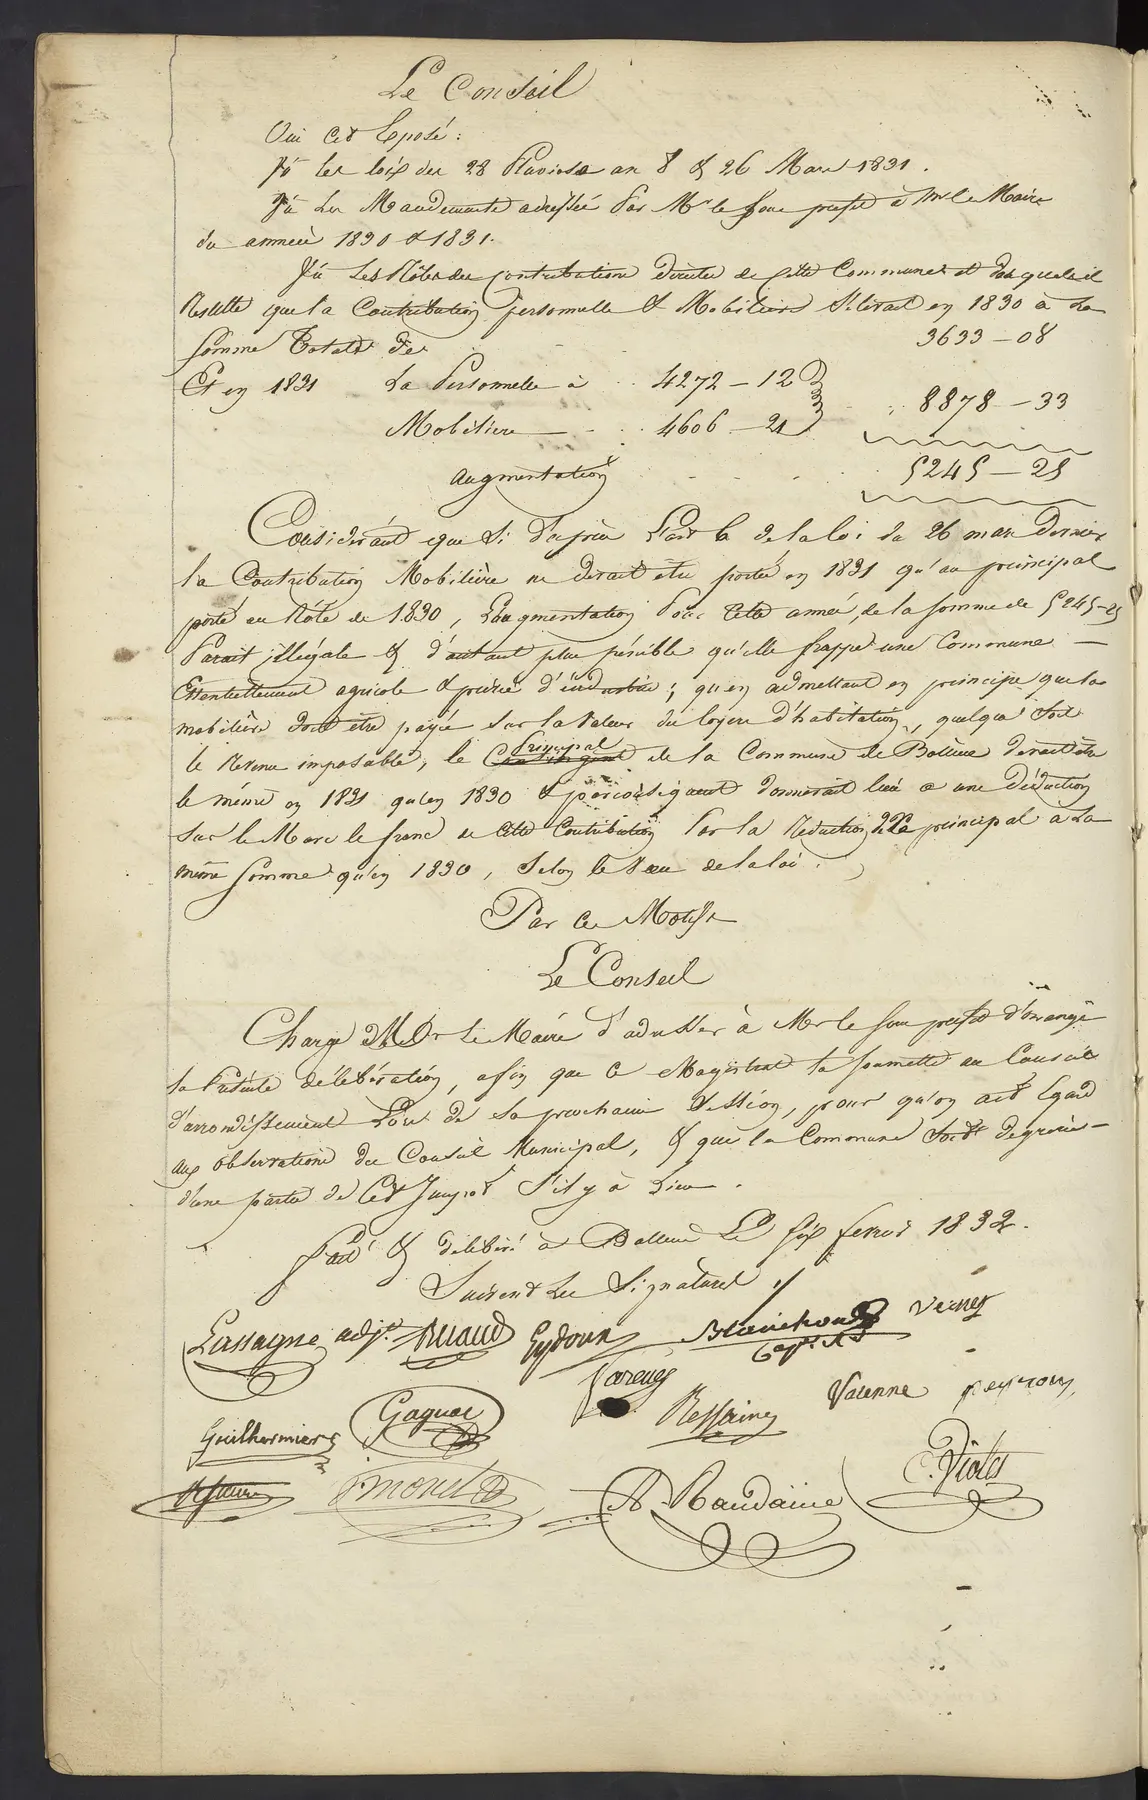 Le Conseil
Oui Cet Exposé :
Vû les loix des 28 Pluviose an 8 & 26 Mars 1831.
Vû Les Mandements adressés Par Mr le Sous préfet à Mr le Maire
des années 1830 & 1831.
Vû Les Rôles des contributions directes de Cette Commune et des quels il
Résulte que la Contribution personnelle & Mobilière S'élevait en 1830 à La
Somme Totale de 3633-08
Et en 1831 La Personnelle à 4272-12
8878-33
Mobilière 4606-21
augmentation 5245-25
Considérant que Si d'après L'art de la loi du 26 mars Dernier
la Contribution Mobilière ne devait être portée en 1831 qu'au principal
porté au Rôle de 1830, L'augmentation Pour Cette année, de la Somme de 5245-25
Parait illégale & d'autant plus pénible qu'elle frappe une Commune
Essentiellement agricole & privée d'industrie ; qu'en admettant en principe que la
mobilière doit être payée Sur la Valeur des loyers d'habitation, quelque Soit
le Revenu imposable, le Principal
de la Commune de Bollène devait être
le même en 1831 qu'en 1830 & par conséquent donnerait lieu à une Déduction
Sur le Marc le franc de Cette Contribution Par la Réduction de Ce principal à La
même Somme qu'en 1830, Selon le Vœu de la loi.
Par Ces Motifs
Le Conseil
Charge Mr Le Maire d'adresser à Mr le Sous préfet d'orange
la Présente délibération, afin que Ce Magistrat la Soumette au Conseil
d'arrondissement Lors de Sa prochaine Session, pour qu'on ait Egard
aux observations du Conseil Municipal, & que la Commune Soit dégrevée
d'une partie de Cet Impot S'il y à Lieu.
Fait & délibéré à Bollène Le Six fevrier 1832.
Suivent Les Signatures
Lassagne adjt. Ruaud Eydoux Blanchon Verney
Gareney Varenne Peyrony
Guilhermiers Gagnac
Monet A. Baudaine C. Violès